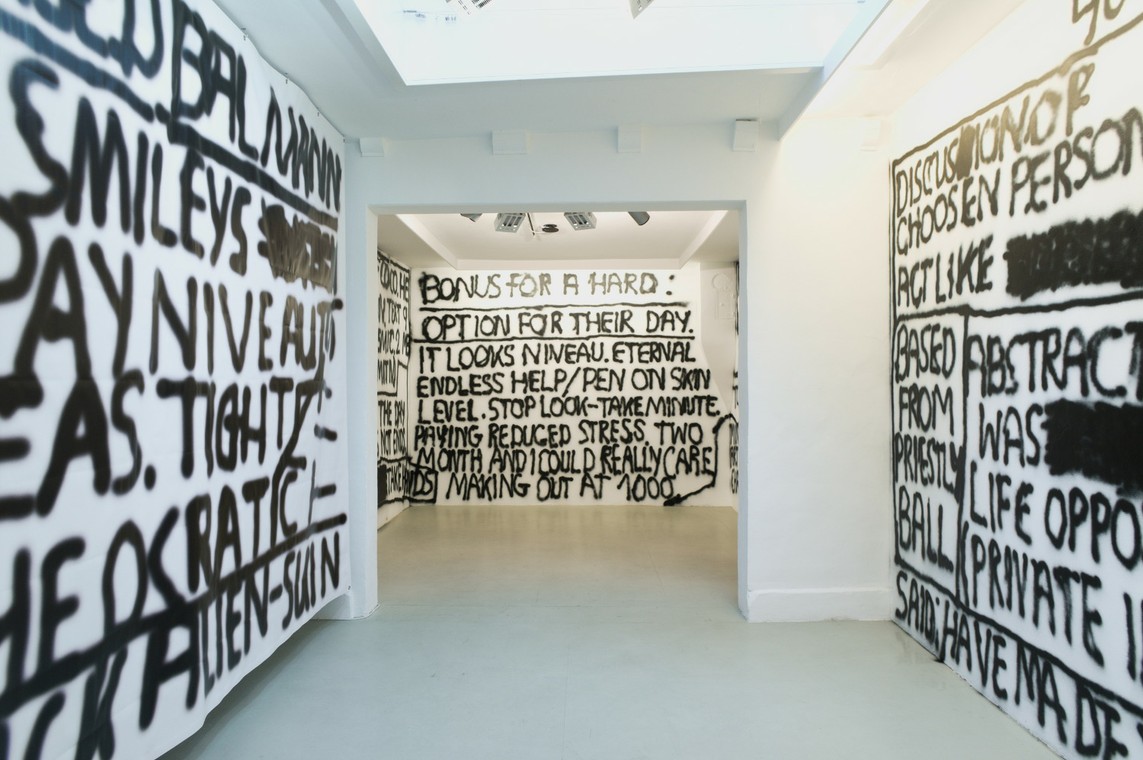 BALMANN
SMILEYS
AY NIVE AUT
EAS. TIGHT
HEOCRATIC
ALIEN-SUIN
BONUS FOR A HARD:
OPTION FOR THEIR DAY.
IT LOOKS NIVEAU. ETERNAL
ENDLESS HELP/PEN ON SKIN
LEVEL. STOP LOOK-TAKE MINUTE.
PAYING REDUCED STRESS. TWO
MONTH AND I COULD REALLY CARE
DS MAKING OUT AT 1000
THE DAY
NOT ENDS
DISCUSSION OF
CHOOSEN PERSON
ACT LIKE
BASED
FROM
PRIESTLY
BALL
ABSTRACT
WAS
LIFE OPPO
(PRIVATE I
SAID: HAVE MADE